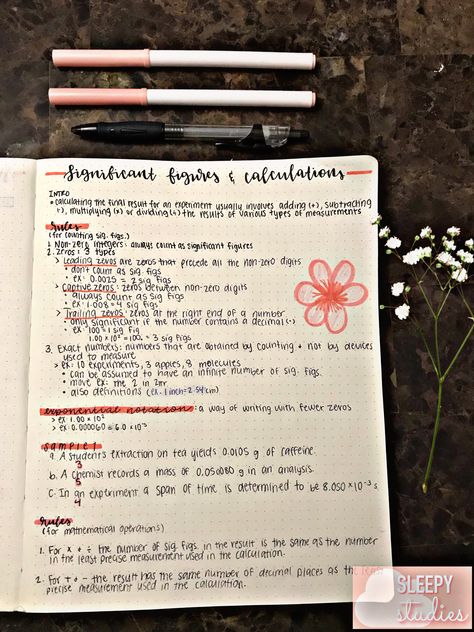 Significant figures & calculations
INTRO
• calculating the final result for an experiment usually involves adding (+), subtracting
(-), multiplying (x) or dividing (÷) the results of various types of measurements
rules
(for counting sig. figs.)
1. Non-zero integers: always count as significant figures
2. zeros: 3 types
> Leading zeros are zeros that precede all the non-zero digits
• don't count as sig figs
• ex: 0.0025 = 2 sig figs
> Captive zeros: zeros between non-zero digits
• always count as sig figs
• ex: 1.008 = 4 sig figs
> Trailing zeros: zeros at the right end of a number
• only significant if the number contains a decimal (.)
• ex: 100 = 1 sig fig
1.00 x 10² = 100. = 3 sig figs
3. Exact numbers: numbers that are obtained by counting + not by devices
used to measure
> ex: 10 experiments, 3 apples, 8 molecules
• can be assumed to have an infinite number of sig. figs.
• more ex: the 2 in 2πr
• also definitions (ex. 1 inch = 2.54 cm)
exponential notation: a way of writing with fewer zeros
> ex: 1.00 x 10²
> ex: 0.000060 = 6.0 x 10⁻⁵
sample 1
a. A student's extraction on tea yields 0.0105 g of caffeine.
3
b. A chemist records a mass of 0.050080 g in an analysis.
5
c. In an experiment a span of time is determined to be 8.050 x 10⁻³ s.
4
rules
(for mathematical operations)
1. For x or ÷ the number of sig. figs. in the result is the same as the number
in the least precise measurement used in the calculation.
2. For + or - the result has the same number of decimal places as the least
precise measurement used in the calculation.
SLEEPY
studies